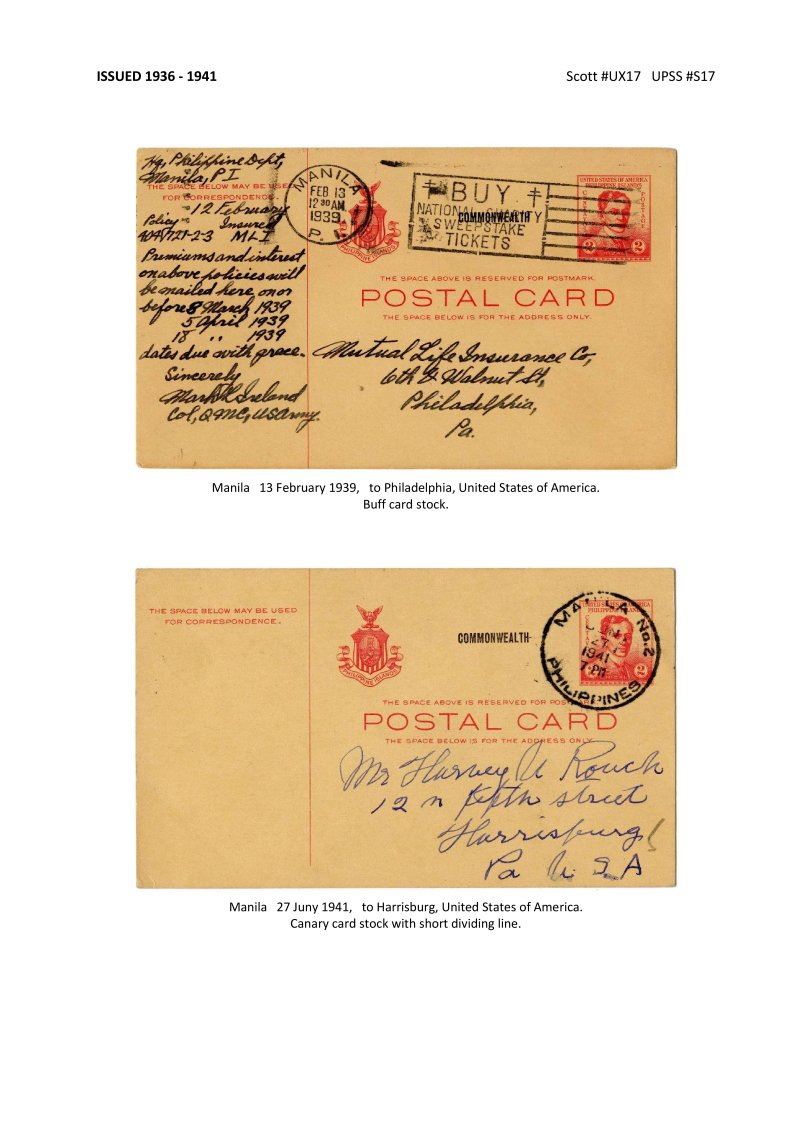 ISSUED 1936 - 1941
Scott #UX17 UPSS #S17
Hq, Philippine Dept,
Manila, P I
THE SPACE BELOW MAY BE USED
FOR CORRESPONDENCE.
12 February
Policy Insured
MLI
Premiums and interest
on above policies will
be mailed here on or
before 8 March 1939
5 April 1939
18 " 1939
dates due with grace.
Sincerely
Mark L Ireland
Col, QMC, US Army.
MANILA
FEB 13
12 30 AM
1939
P. I.
PHILIPPINE ISLANDS
BUY
NATIONAL CHARITY
SWEEPSTAKE
TICKETS
COMMONWEALTH
UNITED STATES OF AMERICA
PHILIPPINE ISLANDS
POSTAGE
2 2
THE SPACE ABOVE IS RESERVED FOR POSTMARK.
POSTAL CARD
THE SPACE BELOW IS FOR THE ADDRESS ONLY.
Mutual Life Insurance Co,
6th & Walnut St,
Philadelphia,
Pa.
Manila 13 February 1939, to Philadelphia, United States of America.
Buff card stock.
THE SPACE BELOW MAY BE USED
FOR CORRESPONDENCE.
PHILIPPINE ISLANDS
COMMONWEALTH
UNITED STATES OF AMERICA
PHILIPPINE ISLANDS
2
MANILA No. 2
27
1941
7 PM
PHILIPPINES
THE SPACE ABOVE IS RESERVED FOR POSTMARK.
POSTAL CARD
THE SPACE BELOW IS FOR THE ADDRESS ONLY.
Mr Harvey A Rouch
12 n fifth street
Harrisburg
Pa U. S. A
Manila 27 Juny 1941, to Harrisburg, United States of America.
Canary card stock with short dividing line.